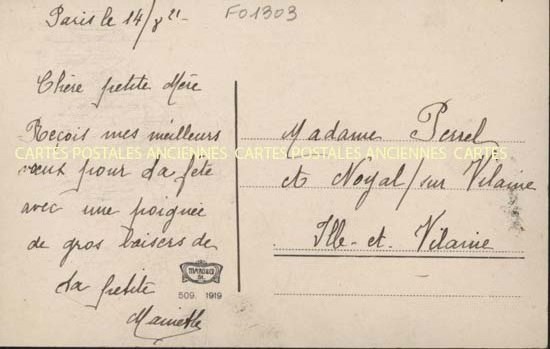 Paris le 14/8 21
FO1303
Chère petite Mère
Reçois mes meilleurs
vœux pour ta fête
avec une poignée
de gros baisers de
ta petite
Madame Perrel
at Noyal/sur Vilaine
Ille-et-Vilaine
CARTES POSTALES ANCIENNES CARTES POSTALES ANCIENNES CARTES
509. 1919